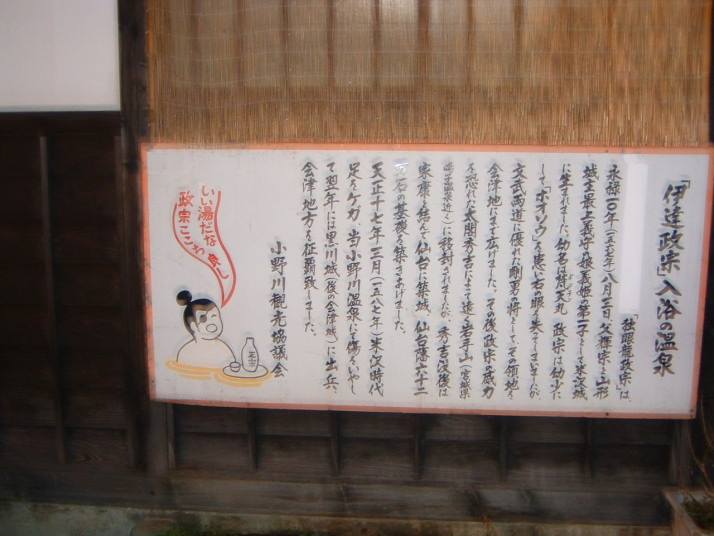 「伊達政宗」入浴の温泉
「独眼龍政宗」は、
永禄一〇年(一五六七年)八月三日父輝宗と山形
城主最上義守の娘義姫の第一子として米沢城
に生まれました。幼名は梵天丸 政宗は幼少に
して「ホオソウ」を患い右眼を失ってしまいましたが、
文武両道に優れた剛勇の将として、その領地を
会津地にまで広げました。その後政宗の威力
を恐れた太閤秀吉によって遠い岩手山(宮城県
鳴子温泉近く)に移封されましたが、秀吉没後は
家康と結んで仙台に築城、仙台藩六十二
万石の基礎を築きあげました。
天正十七年三月(一五八七年)米沢時代
足をケガ、当小野川温泉にて傷をいやし
て翌年には黒川城(後の会津城)に出兵、
会津地方を征覇致しました。
小野川観光協議会
いい湯だな
政宗ここち良し